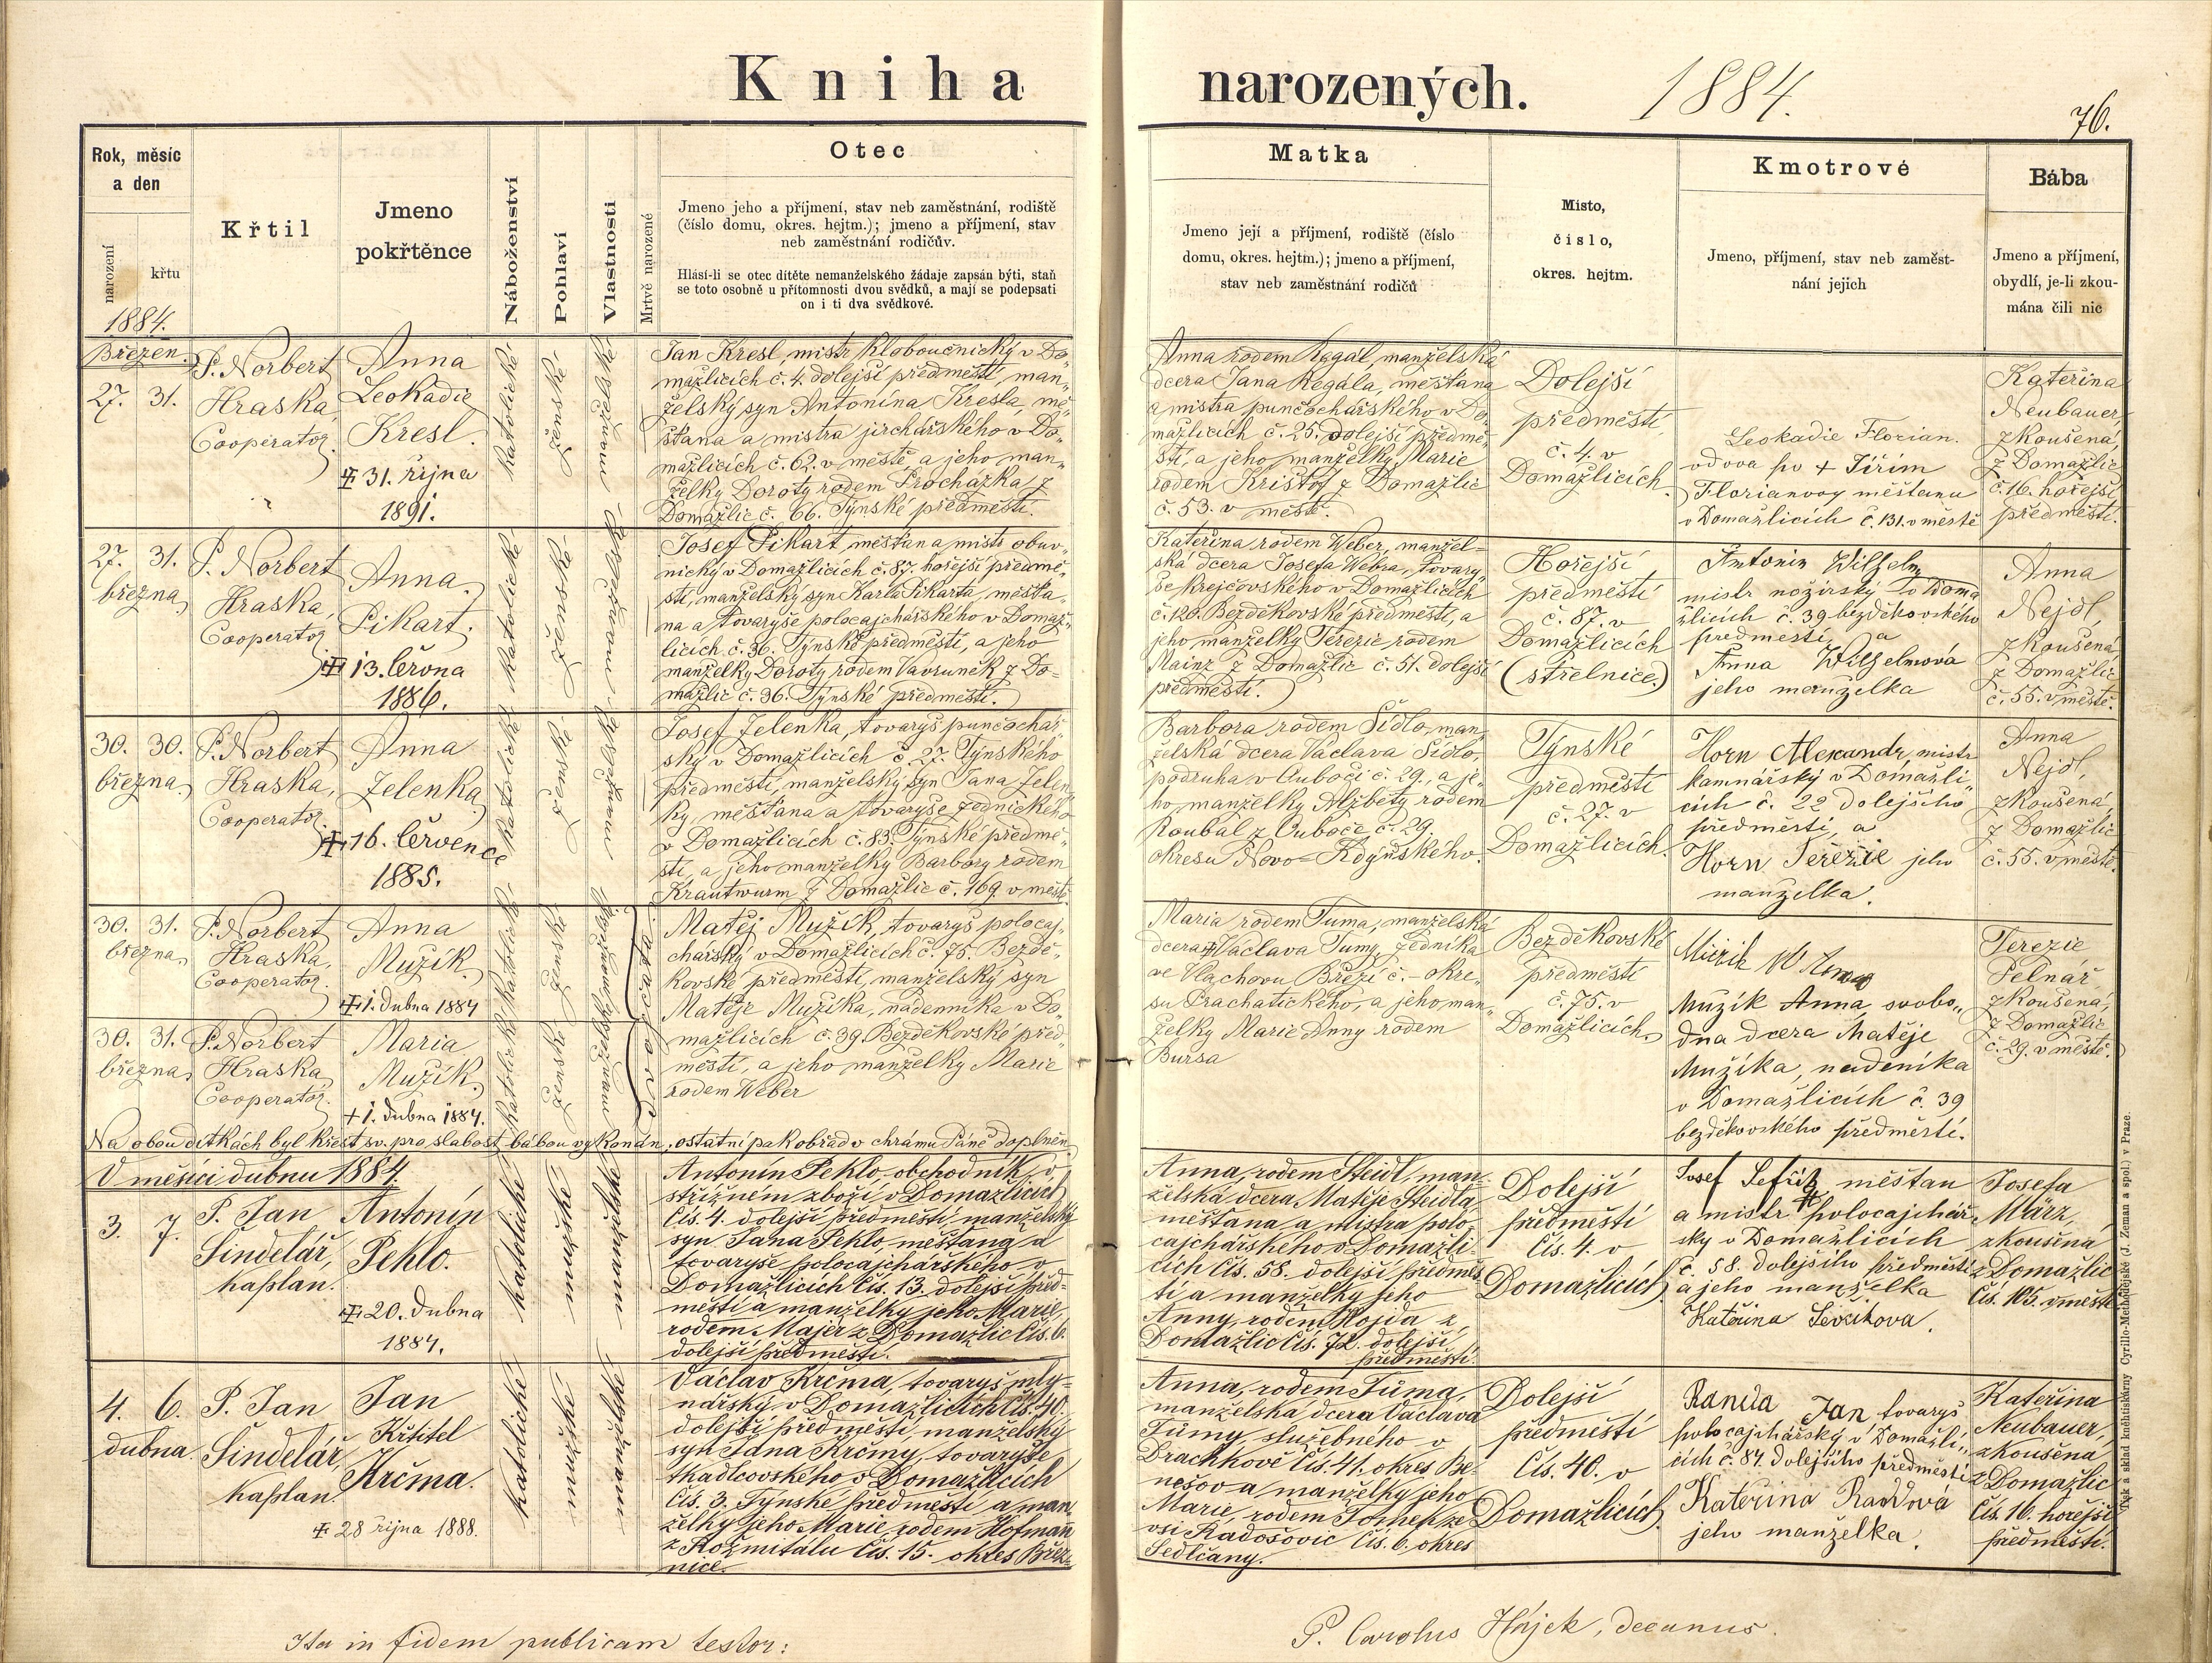 Kniha narozených. 1884.
76.
Rok, měsíc
a den
narození
křtu
1884.
Křtil
Jmeno
pokřtěnce
Náboženství
Pohlaví
Vlastnosti
Mrtvě narozené
Otec
Jmeno jeho a příjmení, stav neb zaměstnání, rodiště
(číslo domu, okres. hejtm.); jmeno a příjmení, stav
neb zaměstnání rodičův.
Hlásí-li se otec dítěte nemanželského žádaje zapsán býti, staň
se toto osobně u přítomnosti dvou svědků, a mají se podepsati
on i ti dva svědkové.
Matka
Jmeno její a příjmení, rodiště (číslo
domu, okres. hejtm.); jmeno a příjmení,
stav neb zaměstnání rodičů
Místo,
číslo,
okres. hejtm.
Kmotrové
Jmeno, příjmení, stav neb zaměst-
nání jejich
Bába
Jmeno a příjmení,
obydlí, je-li zkou-
mána čili nic
Březen.
27. 31.
P. Norbert
Hraska,
Cooperator.
Anna
Leokadie
Kresl.
31. října
1891.
katolické
ženské
Jan Kresl, mistr kloboučnický v Do-
mažlicích č. 4. dolejší předměstí, man-
želský syn Antonína Kresla, mě-
šťana a mistra jirchářského v Do-
mažlicích č. 62. v městě, a jeho man-
želky Doroty rodem Procházka z
Domažlic č. 66. Týnské předměstí.
Anna rodem Regál, manželská
dcera Jana Regála, měšťana
a mistra punčochářského v Do-
mažlicích č. 25. dolejší předmě-
stí, a jeho manželky Marie
rodem Krištof z Domažlic
č. 53. v městě.
Dolejší
předměstí,
č. 4. v
Domažlicích.
Leokadie Florian.
vdova po + Jiřím
Florianovy měštanu
v Domažlicích č. 131. v městě
Kateřina
Neubauer,
zkoušená,
z Domažlic
č. 16. hořejší
předměstí.
27. 31.
března
P. Norbert
Hraska,
Cooperator
Anna
Pikart.
13. června
1886.
katolické
ženské
Josef Pikart, měšťan a mistr obuv-
nický v Domažlicích č. 87. hořejší předmě-
stí, manželský syn Karla Pikarta, měšťa-
na a tovaryše polocajchářského v Domaž-
licích č. 36. Týnské předměstí, a jeho
manželky Doroty rodem Vavruněk z Do-
mažlic č. 36. Týnské předměstí.
Kateřina rodem Weber, manžel-
ská dcera Josefa Webra, tovary-
še krejčovského v Domažlicích
č. 126. Bezděkovské předměstí, a
jeho manželky Terezie rodem
Mainz z Domažlic č. 51. dolejší
předměstí.
Hořejší
předměstí
č. 87. v
Domažlicích
(střelnice.)
Antonin Wilhelm
mistr nožířský v Doma
žlicích č. 39 bezděkovského
předměstí, a
Anna Wilhelmová
jeho manželka
Anna
Nejdl,
zkoušená
z Domažlic
č. 55. v městě.
30. 30.
března
P. Norbert
Hraska,
Cooperator.
Anna
Zelenka
16. července
1885.
katolické
ženské
Josef Zelenka, tovaryš punčochář-
ský v Domažlicích č. 27. Týnského
předměstí, manželský syn Jana Zelen-
ky, měšťana a tovaryše zednického
v Domažlicích č. 83. Týnské předmě-
stí, a jeho manželky Barbory rodem
Krautwurm z Domažlic č. 169. v městě.
Barbora rodem Šídlo, man-
želská dcera Václava Šídlo,
podruha v Ouboči č. 29., a je-
ho manželky Alžběty rodem
Roubal z Ouboče č. 29.
okresu Novo-Kdyňského.
Týnské
předměstí
č. 27. v
Domažlicích.
Horn Alexandr, mistr
kamnářský v Domažli-
cích č. 22 dolejšího
předměstí, a
Horn Terezie jeho
manželka.
Anna
Nejdl,
zkoušená
z Domažlic
č. 55. v městě.
30. 31.
března
P. Norbert
Hraska,
Cooperator.
Anna
Mužík.
1. dubna 1884
katolické
ženské
Matěj Mužík, tovaryš polocaj-
chářský v Domažlicích č. 75. Bezdě-
kovské předměstí, manželský syn
Matěje Mužíka, nádenníka v Do-
mažlicích č. 39. Bezděkovské před-
městí, a jeho manželky Marie
rodem Weber
Maria rodem Tuma, manželská
dcera Václava Tumy, zedníka
ve Vlachovu Březí č. - okre-
su Prachatického, a jeho man-
želky Marie Anny rodem
Bursa
Bezděkovské
předměstí
č. 75. v
Domažlicích.
Mužík Anna, svobo-
dna dcera Matěje
Mužíka, nadeníka
v Domažlicích č. 39
bezděkovského předměstí.
Terezie
Pelnář
zkoušená,
z Domažlic
č. 29. v městě.
30. 31.
března
P. Norbert
Hraska,
Cooperator.
Maria
Mužík.
+ 1. dubna 1884.
katolické
ženské
Na obou dítkách byl křest sv. pro slabost bábou vykonán, ostatní pak obřad v chrámu Páně doplněn.
V měsíci dubnu 1884.
3. 7.
P. Jan
Šindelář,
kaplan.
Antonín
Pehlo.
20. dubna
1884.
katolické
mužské
Antonín Pehlo, obchodník v
střižném zboží v Domažlicích
čís. 4. dolejší předměstí, manželský
syn Jana Pehlo, měšťana a
tovaryše polocajchářského v
Domažlicích čís. 13. dolejší před-
městí a manželky jeho Marie,
rodem Majer z Domažlic čís. 6.
dolejší předměstí.
Anna, rodem Steidl, man-
želská dcera Matěje Steidla,
měšťana a mistra polo-
cajchářského v Domažli-
cích čís. 58. dolejší předměs-
tí a manželky jeho
Anny, rodem Hojda z
Domažlic čís. 72. dolejší
předměstí.
Dolejší
předměstí
čís. 4. v
Domažlicích
Josef měštan
a mistr polocajchář-
sky v Domažlicích
č. 58. dolejšího předměstí
a jeho manželka
Kateřina
Josefa
März,
zkoušená
z Domažlic
čís. 105. v městě
4. 6.
dubna
P. Jan
Šindelář,
kaplan.
Jan
Křtitel
Krčma.
28 října 1888.
katolické
mužské
Václav Krčma, tovaryš mly-
nářský v Domažlicích čís. 40.
dolejší předměstí, manželský
syn Jana Krčmy, tovaryše
tkadlcovského v Domažlicích
čís. 3. Týnské předměstí a man-
želky jeho Marie, rodem Hofmann
z Rožmitálu čís. 15. okres Břez-
nice.
Anna, rodem Tůma,
manželská dcera Václava
Tůmy, služebného v
Drachkově čís. 41. okres Be-
nešov a manželky jeho
Marie, rodem ze
vsi Radošovic čís. 6. okres
Sedlčany.
Dolejší
předměstí
čís. 40. v
Domažlicích.
Randa Jan, tovaryš
polocajchářský v Domažli-
cích č. 84. dolejšího předměstí
Kateřina Raddová
jeho manželka.
Kateřina
Neubauer,
zkoušená
z Domažlic
čís. 16. hořejší
předměstí.
Ita in fidem publicam testor:
P. Carolus Hájek, decanus.
Tisk a sklad knihtiskárny Cyrillo-Methodějské (J. Zeman a spol.) v Praze.